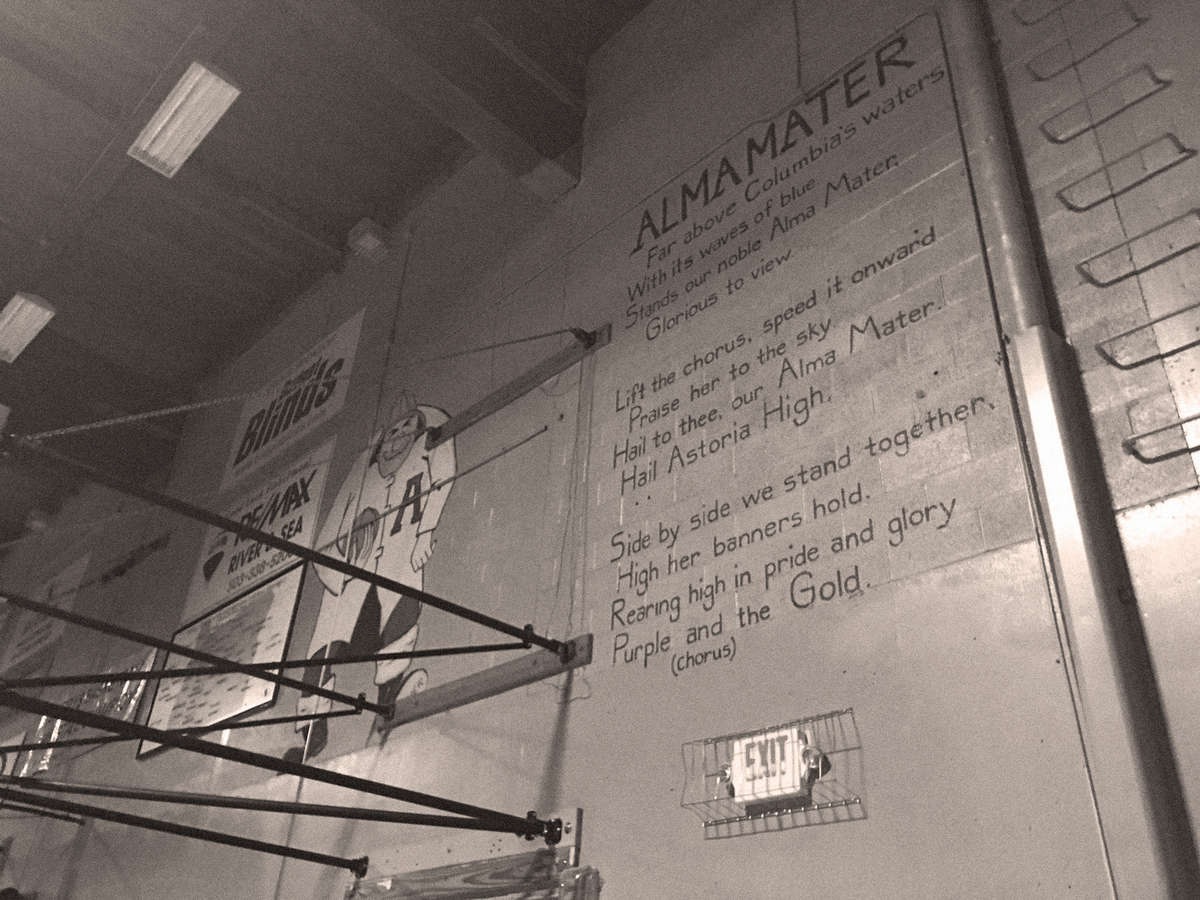 ALMA MATER
Far above Columbia's waters
With its waves of blue
Stands our noble Alma Mater.
Glorious to view
Lift the chorus, speed it onward
Praise her to the sky
Hail to thee, our Alma Mater.
Hail Astoria High.
Side by side we stand together.
High her banners hold.
Rearing high in pride and glory
Purple and the Gold.
(chorus)
EXIT
Blinds
RE/MAX
RIVER & SEA
A